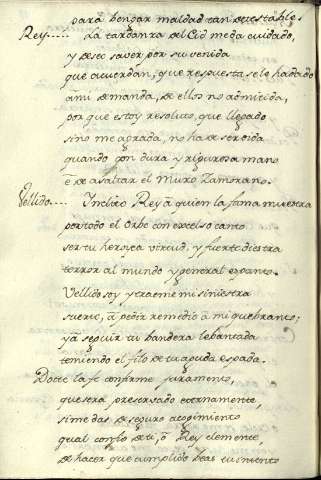 para bengar maldad tan detestable
Rey..... La tardanza del Cid me da cuidado,
y deseo saver por su venida
que acuerdan, que respuesta se le ha dado
a mi demanda, de ellos no admitida,
por que estoy resoluto, que llegado
si no me agrada, no ha de ser oida
quando con dura y rigurosa mano
e de asaltar el Muro Zamorano.
Vellido.... Inclito Rey a quien la fama muestra
por todo el Orbe con excelso canto
ser tu heroyca virtud, y fuerte diestra
terror al mundo y general espanto.
Vellido soy y traeme mi siniestra
suerte, a pedir remedio a mi quebranto;
ya seguir tu bandera lebantada
temiendo el filo de tu aguda espada.
Dote la fe con firme juramento,
que sera preservado eternamente,
si me das seguro acogimiento
qual confio de ti, ò Rey clemente,
de hacer que cumplido beas tu intento